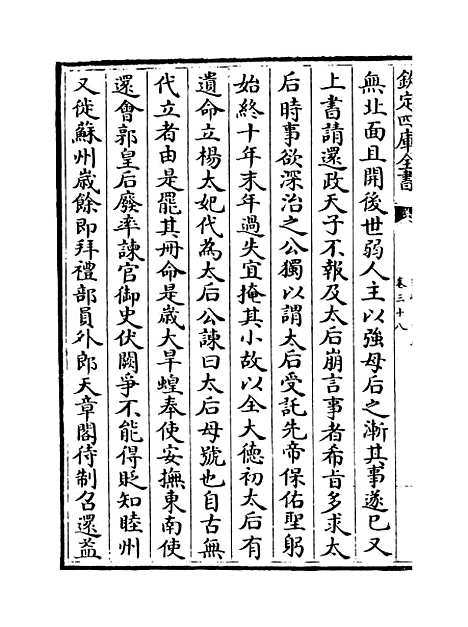 欽定四庫全書
卷三十八
無北面且開後世弱人主以強母后之漸其事遂已又
上書請還政天子不報及太后崩言事者希旨多求太
后時事欲深治之公獨以謂太后受託先帝保佑聖躬
始終十年末年過失宜掩其小故以全大德初太后有
遺命立楊太妃代為太后公諫曰太后母號也自古無
代立者由是罷其冊命是歲大旱蝗奉使安撫東南使
還會郭皇后廢率諫官御史伏閤爭不能得貶知睦州
又徙蘇州歲餘即拜禮部員外郎天章閣待制召還益